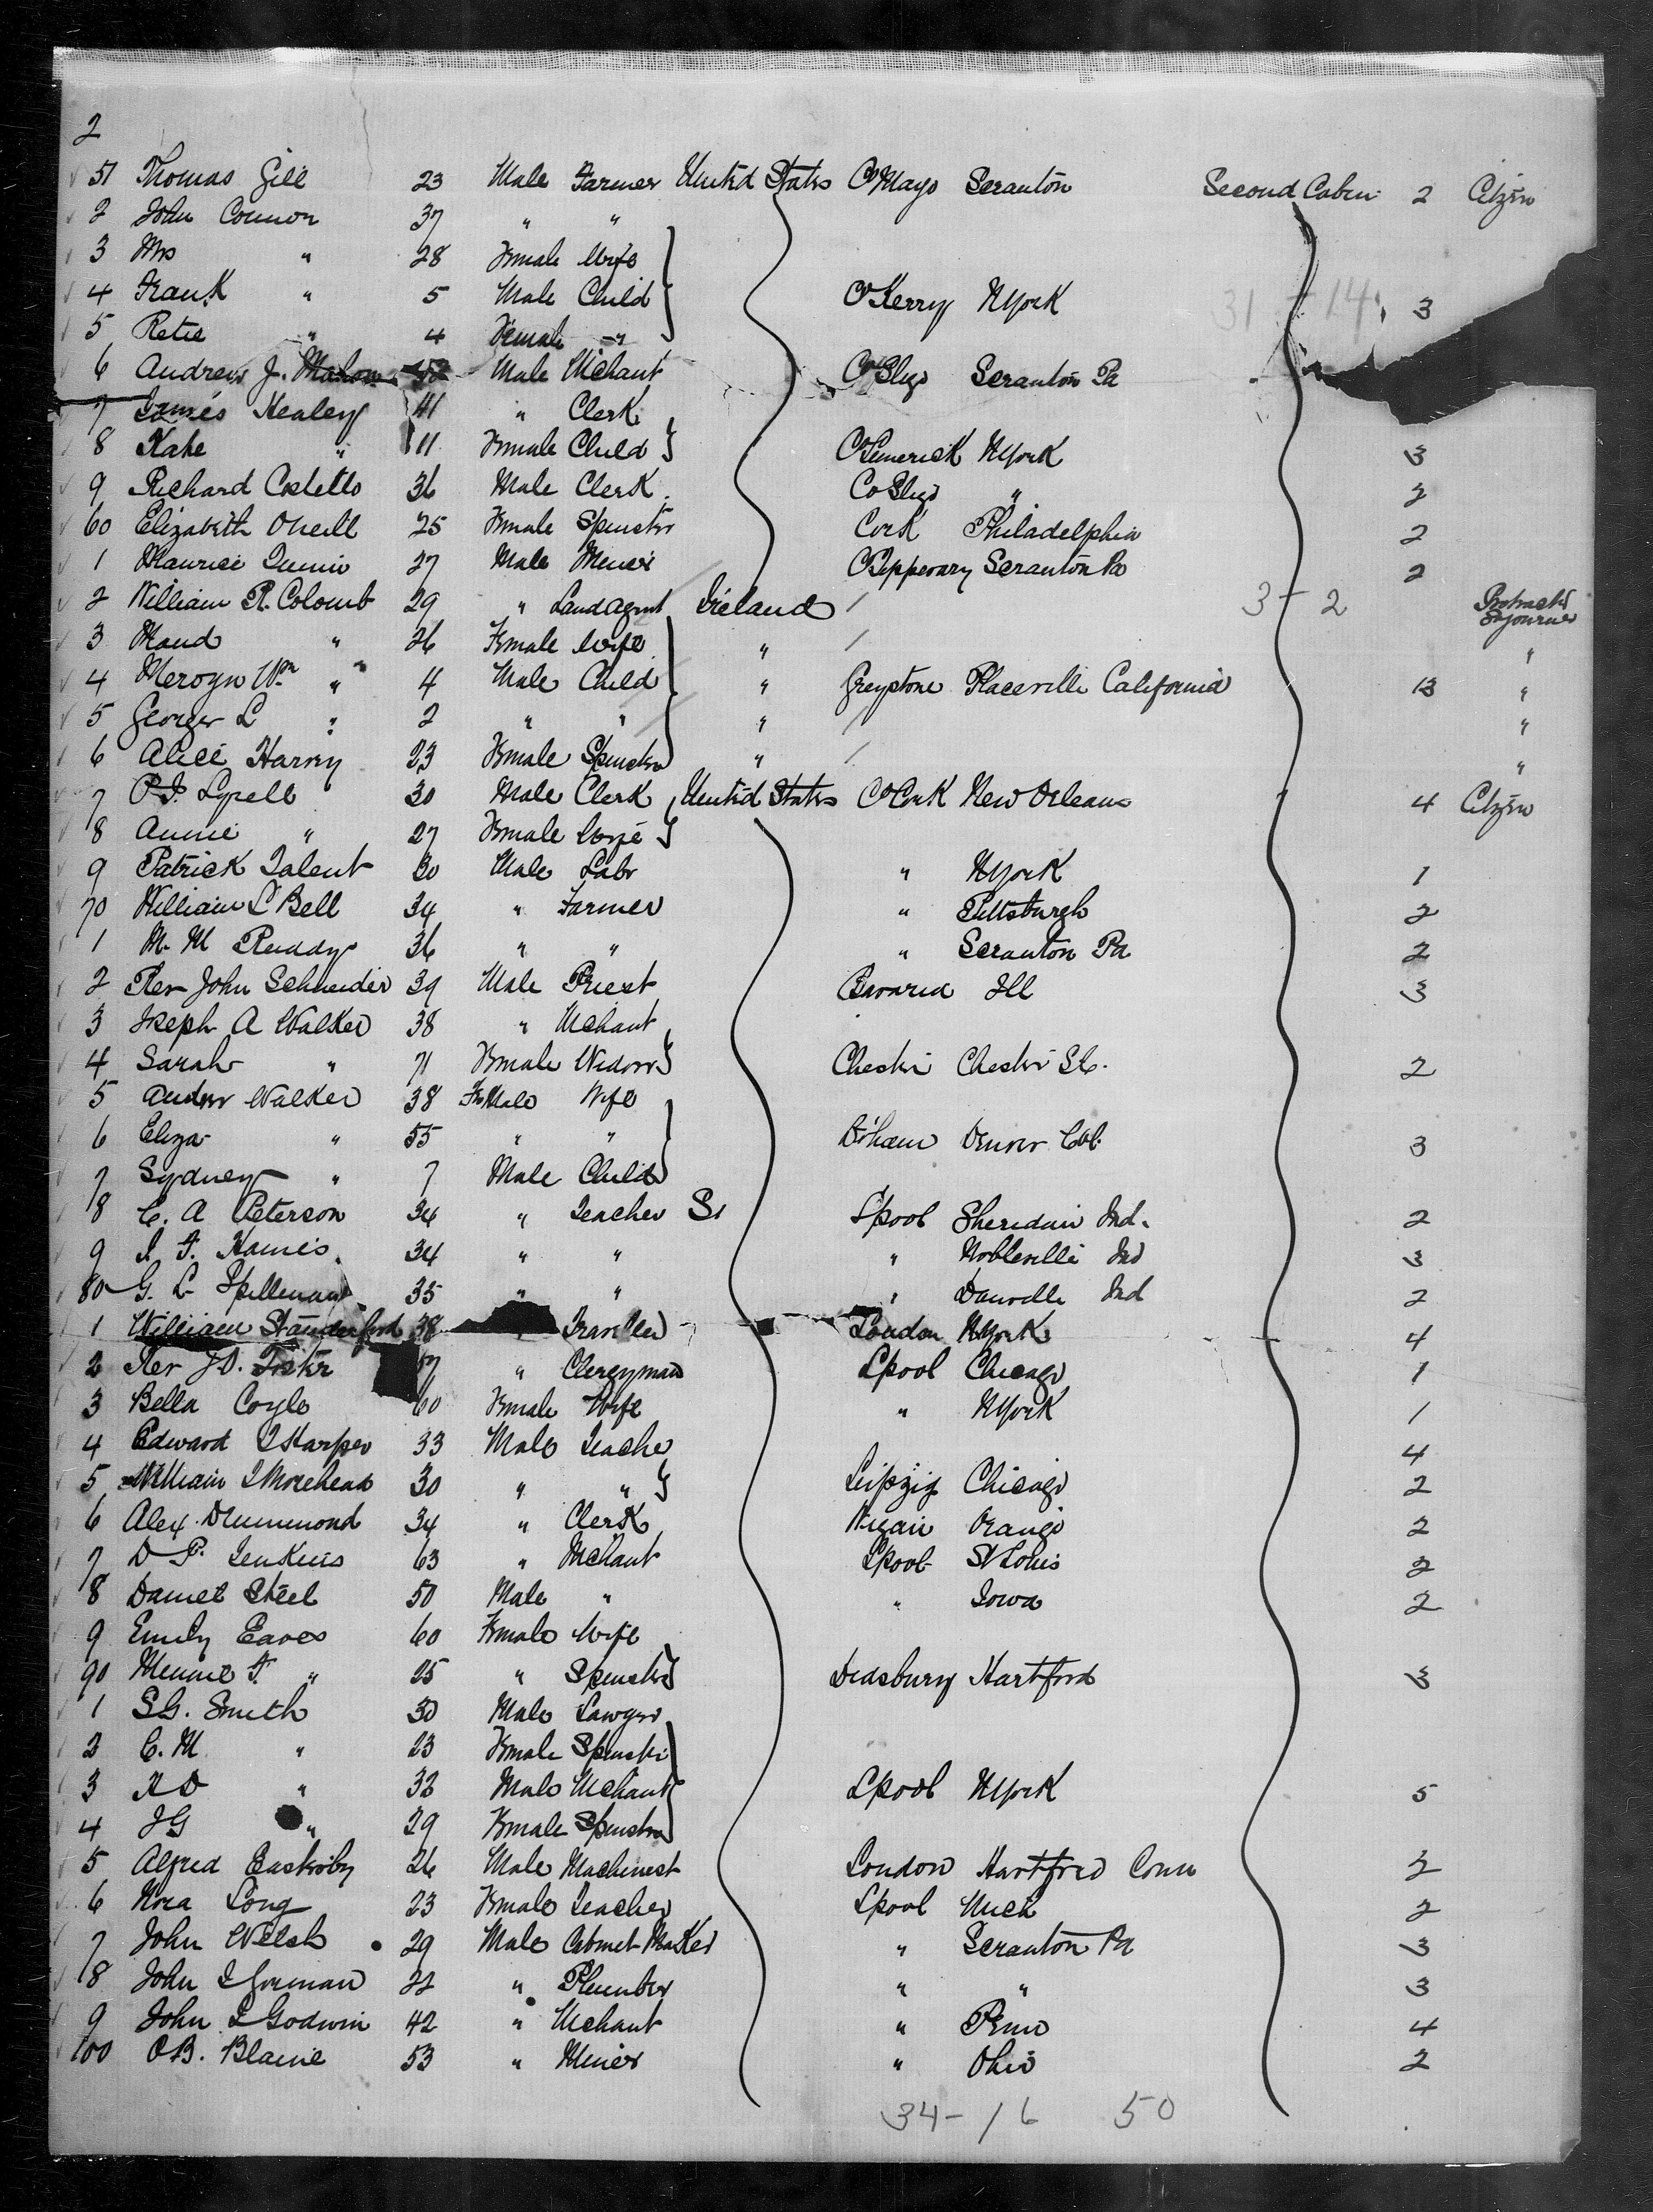 2
51 Thomas Gill 23 Male Farmer United States Co Mayo Scranton Second Cabin 2 Citizen
2 John Connor 37 " "
3 Mrs " 28 Female Wife
4 Frank " 5 Male Child Co Kerry N York 31 - 14 3
5 Retie " 4 Female "
6 Andrew J. 52 Male Mchant Co Sligo Scranton Pa
7 James Healey 41 " Clerk
8 Kate " 11 Female Child Co Limerick N York 3
9 Richard Costello 36 Male Clerk Co Sligo " 2
60 Elizabeth Oneill 25 Female Spinster Cork Philadelphia 2
1 Maurice Quinn 27 Male Miner Co Tipperary Scranton Pa 2
2 William R. Colomb 29 " Land Agent Ireland / 3 - 2 Protracted Sojourner
3 Maud " 26 Female Wife " / "
4 Mervyn Wm " 4 Male Child " Greystone Placeville California 13 "
5 George L " 2 " " " / "
6 Alice Harvey 23 Female Spinster " / "
7 P.J. Lyrell 30 Male Clerk United States Co Cork New Orleans 4 Citizen
8 Annie " 27 Female Wife
9 Patrick Talent 30 Male Labr " N York 1
70 William L Bell 34 " Farmer " Pittsburgh 2
1 M. M Ruddy 36 " " " Scranton Pa 2
2 Rev John Schneider 39 Male Priest Bavaria Ill 3
3 Joseph A Walker 38 " Mchant
4 Sarah " 71 Female Widow Chester Chester 2
5 Andrew Walker 38 FeMale Wife
6 Eliza " 55 " " D'ham Denver Col. 3
7 Sydney " 7 Male Child
8 C. A Peterson 34 " Teacher Lpool Sheridan Ind. 2
9 J. F. Haines 34 " " " Noblesville Ind 3
80 G. L Spillman 35 " " " Danville Ind 2
1 William Standerford 38 " Traveller London N York 4
2 Rev J D. Foster 57 " Clergyman Lpool Chicago 1
3 Bella Coyle 60 Female Wife " N York 1
4 Edward T Harper 33 Male Teacher 4
5 William T Morehead 30 " " Leipzig Chicago 2
6 Alex Drummond 34 " Clerk Wigan Orange 2
7 D P. Jenkins 63 " Mchant Lpool St Louis 2
8 Daniel Steel 50 Male " " Iowa 2
9 Emily Eaves 60 Female Wife
90 Minnie F. " 25 " Spinster Didsbury Hartford 3
1 S G. Smith 30 Male Lawyer
2 C. M " 23 Female Spinster
3 H D " 32 Male Mchant Lpool N York 5
4 J G " 29 Female Spinster
5 Alfred 26 Male Machinest London Hartford Conn 2
6 Nora Long 23 Female Teacher Lpool Mich 2
7 John Welsh 29 Male Cabinet Maker " Scranton Pa 3
8 John J Gorman 22 " Plumber " " 3
9 John J Godwin 42 " Mchant " Penn 4
100 O B. Blaine 53 " Miner " Ohio 2
34 - 16 50